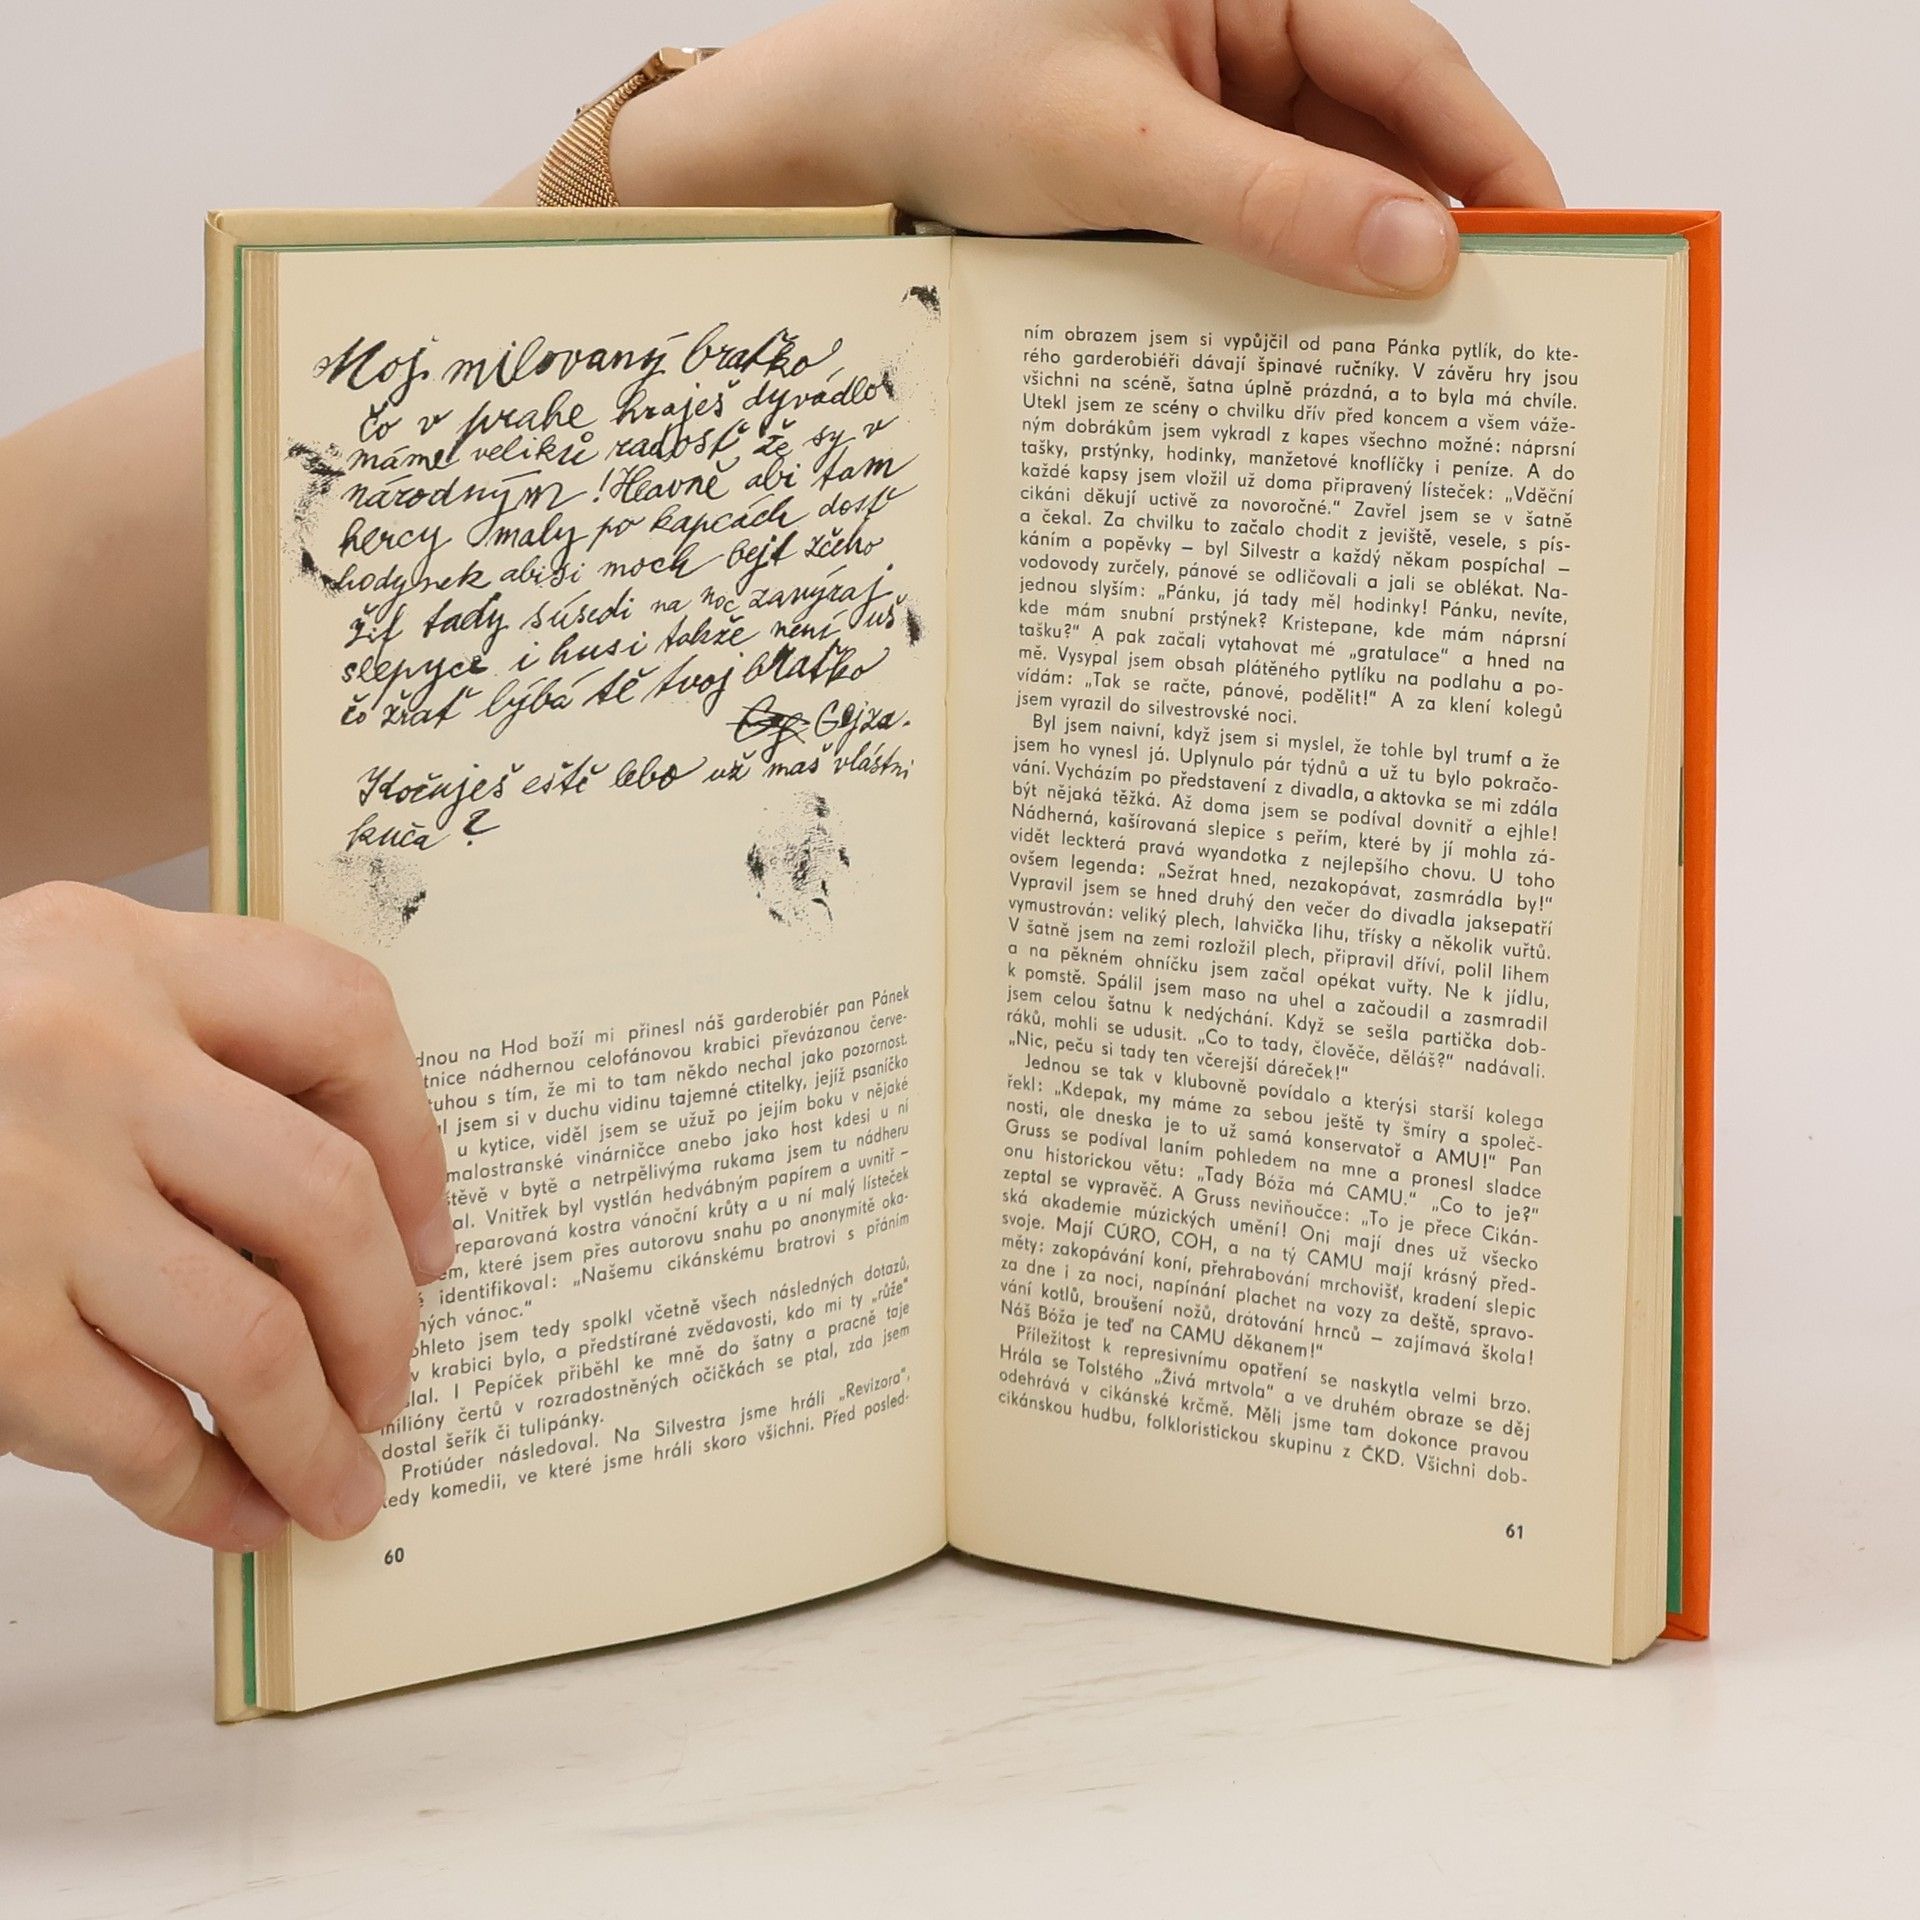 Moj milovaný braťko
čo v prahe hraješ dyvádlo
máme velikú radosť že sy v
národným! Hlavně abi tam
hercy maly po kapcách dosť
hodynek abisi moch bejt zčeho
žif tady súsedi na noc zavýraj
slepyce i husi takže není uš
čo žrať lýbá tě tvoj braťko
Gejza.
Kočuješ eště lebo už maš vlástni
kuča?
dnou na Hod boží mi přinesl náš garderobiér pan Pánek
tnice nádhernou celofánovou krabici převázanou červe-
tuhou s tím, že mi to tam někdo nechal jako pozornost.
l jsem si v duchu vidinu tajemné ctitelky, jejíž psaníčko
u kytice, viděl jsem se užuž po jejím boku v nějaké
malostranské vinárničce anebo jako host kdesi u ní
štěvě v bytě a netrpělivýma rukama jsem tu nádheru
al. Vnitřek byl vystlán hedvábným papírem a uvnitř –
reparovaná kostra vánoční krůty a u ní malý lísteček
em, které jsem přes autorovu snahu po anonymitě oka-
ě identifikoval: „Našemu cikánskému bratrovi s přáním
ných vánoc.“
ohleto jsem tedy spolkl včetně všech následných dotazů,
v krabici bylo, a předstírané zvědavosti, kdo mi ty „růže“
slal. I Pepíček přiběhl ke mně do šatny a pracně taje
milióny čertů v rozradostněných očičkách se ptal, zda jsem
dostal šeřík či tulipánky.
Protiúder následoval. Na Silvestra jsme hráli „Revizora“,
tedy komedii, ve které jsme hráli skoro všichni. Před posled-
60
ním obrazem jsem si vypůjčil od pana Pánka pytlík, do kte-
rého garderobiéři dávají špinavé ručníky. V závěru hry jsou
všichni na scéně, šatna úplně prázdná, a to byla má chvíle.
Utekl jsem ze scény o chvilku dřív před koncem a všem váže-
ným dobrákům jsem vykradl z kapes všechno možné: náprsní
tašky, prstýnky, hodinky, manžetové knoflíčky i peníze. A do
každé kapsy jsem vložil už doma připravený lísteček: „Vděční
cikáni děkují uctivě za novoročné.“ Zavřel jsem se v šatně
a čekal. Za chvilku to začalo chodit z jeviště, vesele, s pís-
káním a popěvky – byl Silvestr a každý někam pospíchal –
vodovody zurčely, pánové se odličovali a jali se oblékat. Na-
jednou slyším: „Pánku, já tady měl hodinky! Pánku, nevíte,
kde mám snubní prstýnek? Kristepane, kde mám náprsní
tašku?“ A pak začali vytahovat mé „gratulace“ a hned na
mě. Vysypal jsem obsah plátěného pytlíku na podlahu a po-
vídám: „Tak se račte, pánové, podělit!“ A za klení kolegů
jsem vyrazil do silvestrovské noci.
Byl jsem naivní, když jsem si myslel, že tohle byl trumf a že
jsem ho vynesl já. Uplynulo pár týdnů a už tu bylo pokračo-
vání. Vycházím po představení z divadla, a aktovka se mi zdála
být nějaká těžká. Až doma jsem se podíval dovnitř a ejhle!
Nádherná, kašírovaná slepice s peřím, které by jí mohla zá-
vidět leckterá pravá wyandotka z nejlepšího chovu. U toho
ovšem legenda: „Sežrat hned, nezakopávat, zasmrádla by!“
Vypravil jsem se hned druhý den večer do divadla jaksepatří
vymustrován: veliký plech, lahvička lihu, třísky a několik vuřtů.
V šatně jsem na zemi rozložil plech, připravil dříví, polil lihem
a na pěkném ohníčku jsem začal opékat vuřty. Ne k jídlu,
k pomstě. Spálil jsem maso na uhel a začoudil a zasmradil
jsem celou šatnu k nedýchání. Když se sešla partička dob-
ráků, mohli se udusit. „Co to tady, člověče, děláš?“ nadávali.
„Nic, peču si tady ten včerejší dáreček!“
Jednou se tak v klubovně povídalo a kterýsi starší kolega
řekl: „Kdepak, my máme za sebou ještě ty šmíry a společ-
nosti, ale dneska je to už samá konservatoř a AMU!“ Pan
Gruss se podíval laním pohledem na mne a pronesl sladce
onu historickou větu: „Tady Bóža má CAMU.“ „Co to je?“
zeptal se vypravěč. A Gruss neviňoučce: „To je přece Cikán-
ská akademie múzických umění! Oni mají dnes už všecko
svoje. Mají CÚRO, COH, a na tý CAMU mají krásný před-
měty: zakopávání koní, přehrabování mrchovišť, kradení slepic
za dne i za noci, napínání plachet na vozy za deště, spravo-
vání kotlů, broušení nožů, drátování hrnců – zajímavá škola!
Náš Bóža je teď na CAMU děkanem!“
Příležitost k represivnímu opatření se naskytla velmi brzo.
Hrála se Tolstého „Živá mrtvola“ a ve druhém obraze se děj
odehrává v cikánské krčmě. Měli jsme tam dokonce pravou
cikánskou hudbu, folkloristickou skupinu z ČKD. Všichni dob-
61